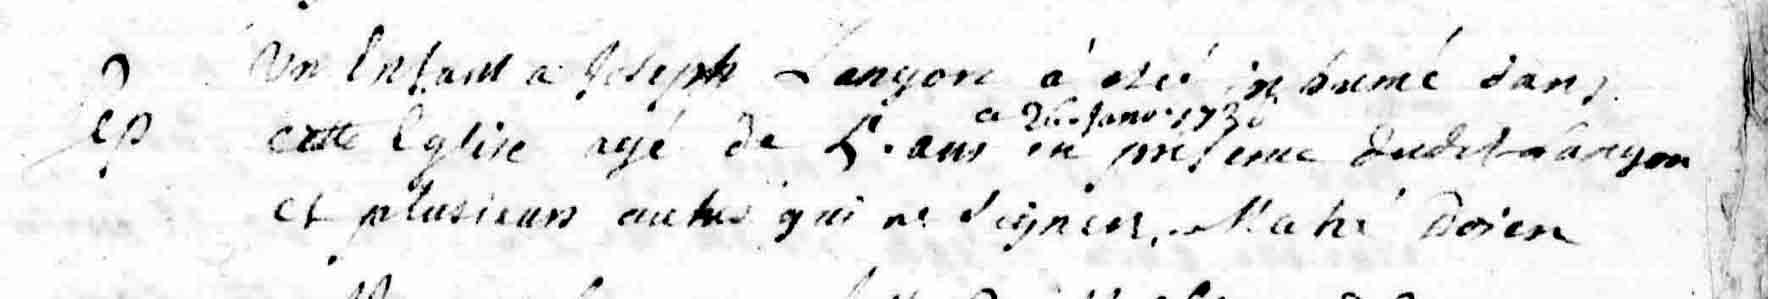 Un Enfant a Joseph Langon à esté inhumé dans
Sep cette Eglise agé de 5. ans en presence dudit Langon
ce 26. Janv. 173
et plusieurs autres qui ne signent. Mahé Doien